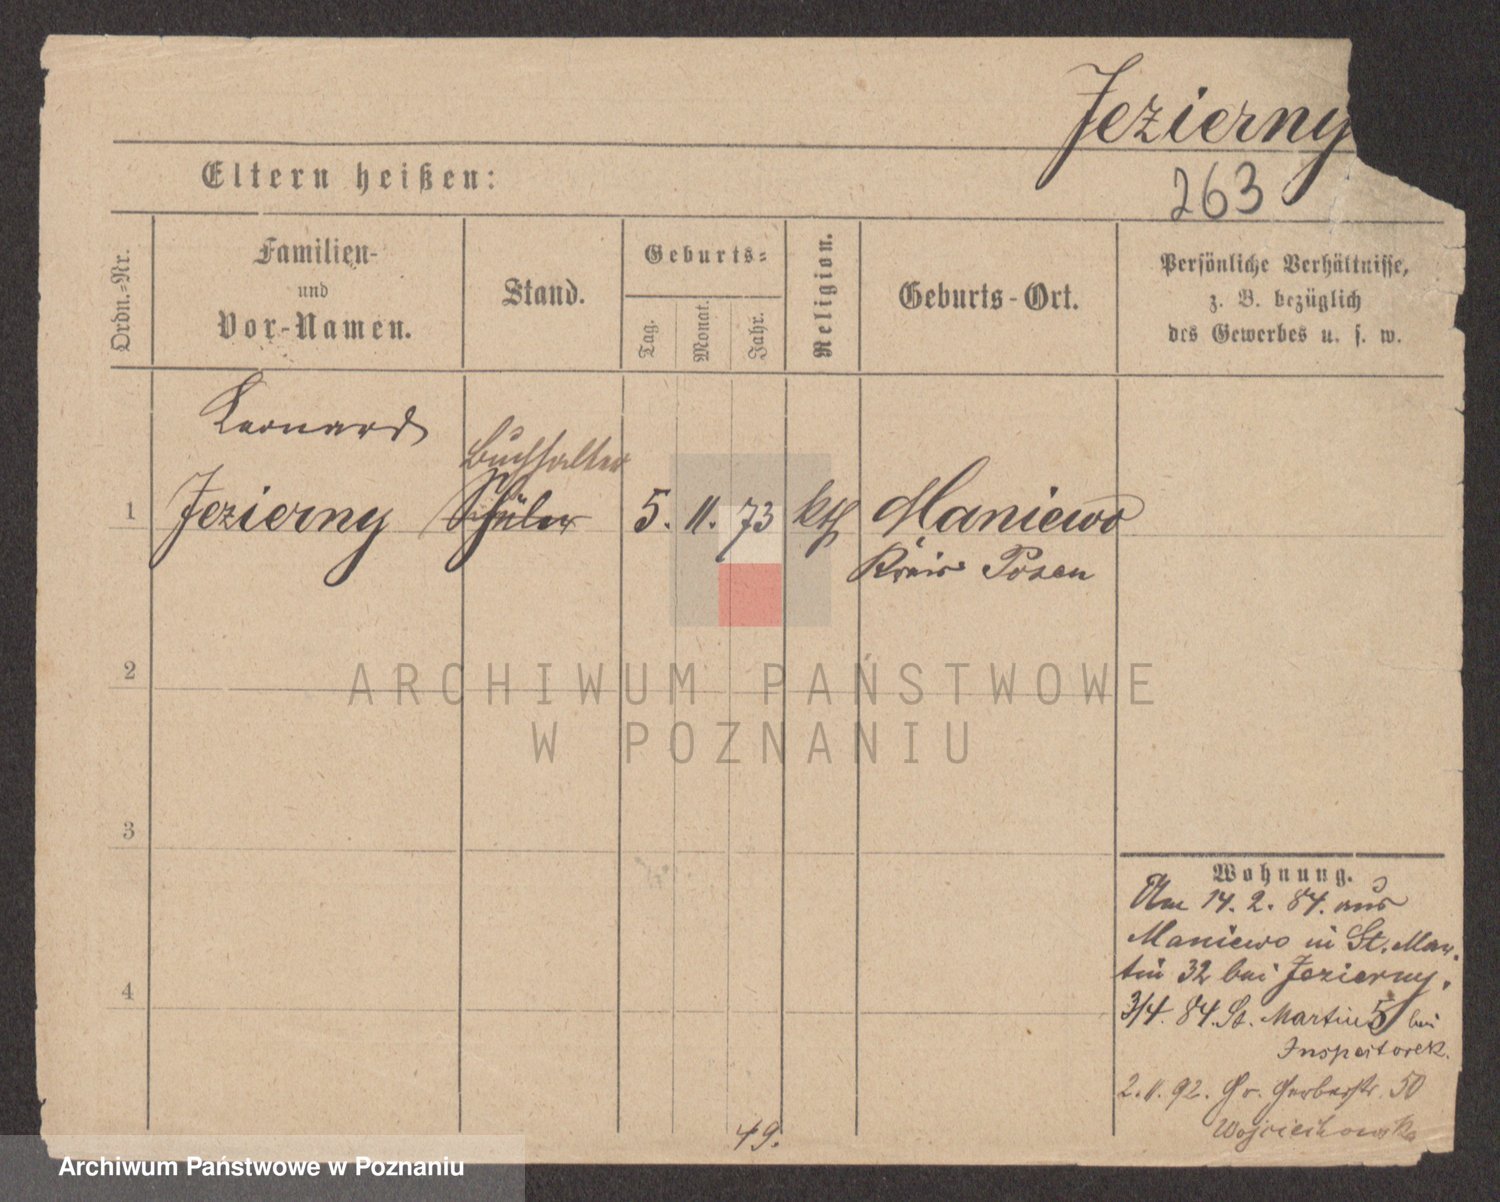 Jezierny
Eltern heißen:
263
Ordn.-Nr.
Familien-
und
Vor-Namen.
Stand.
Geburts-
Tag.
Monat.
Jahr.
Religion.
Geburts-Ort.
Persönliche Verhältnisse,
z. B. bezüglich
des Gewerbes u. s. w.
Leonard
Buchhalter
1 Jezierny Schüler 5. 11. 73 kth Maniewo
Kreis Posen
2
ARCHIWUM PAŃSTWOWE
W POZNANIU
3
Wohnung.
Am 14. 2. 84. aus
Maniewo in St. Mar-
tin 32 bei Jezierny.
3/4. 84. St. Martin 5 bei
4
2. 11. 92. Gr. Gerberstr. 50
Wojciechowska
49.
Archiwum Państwowe w Poznaniu